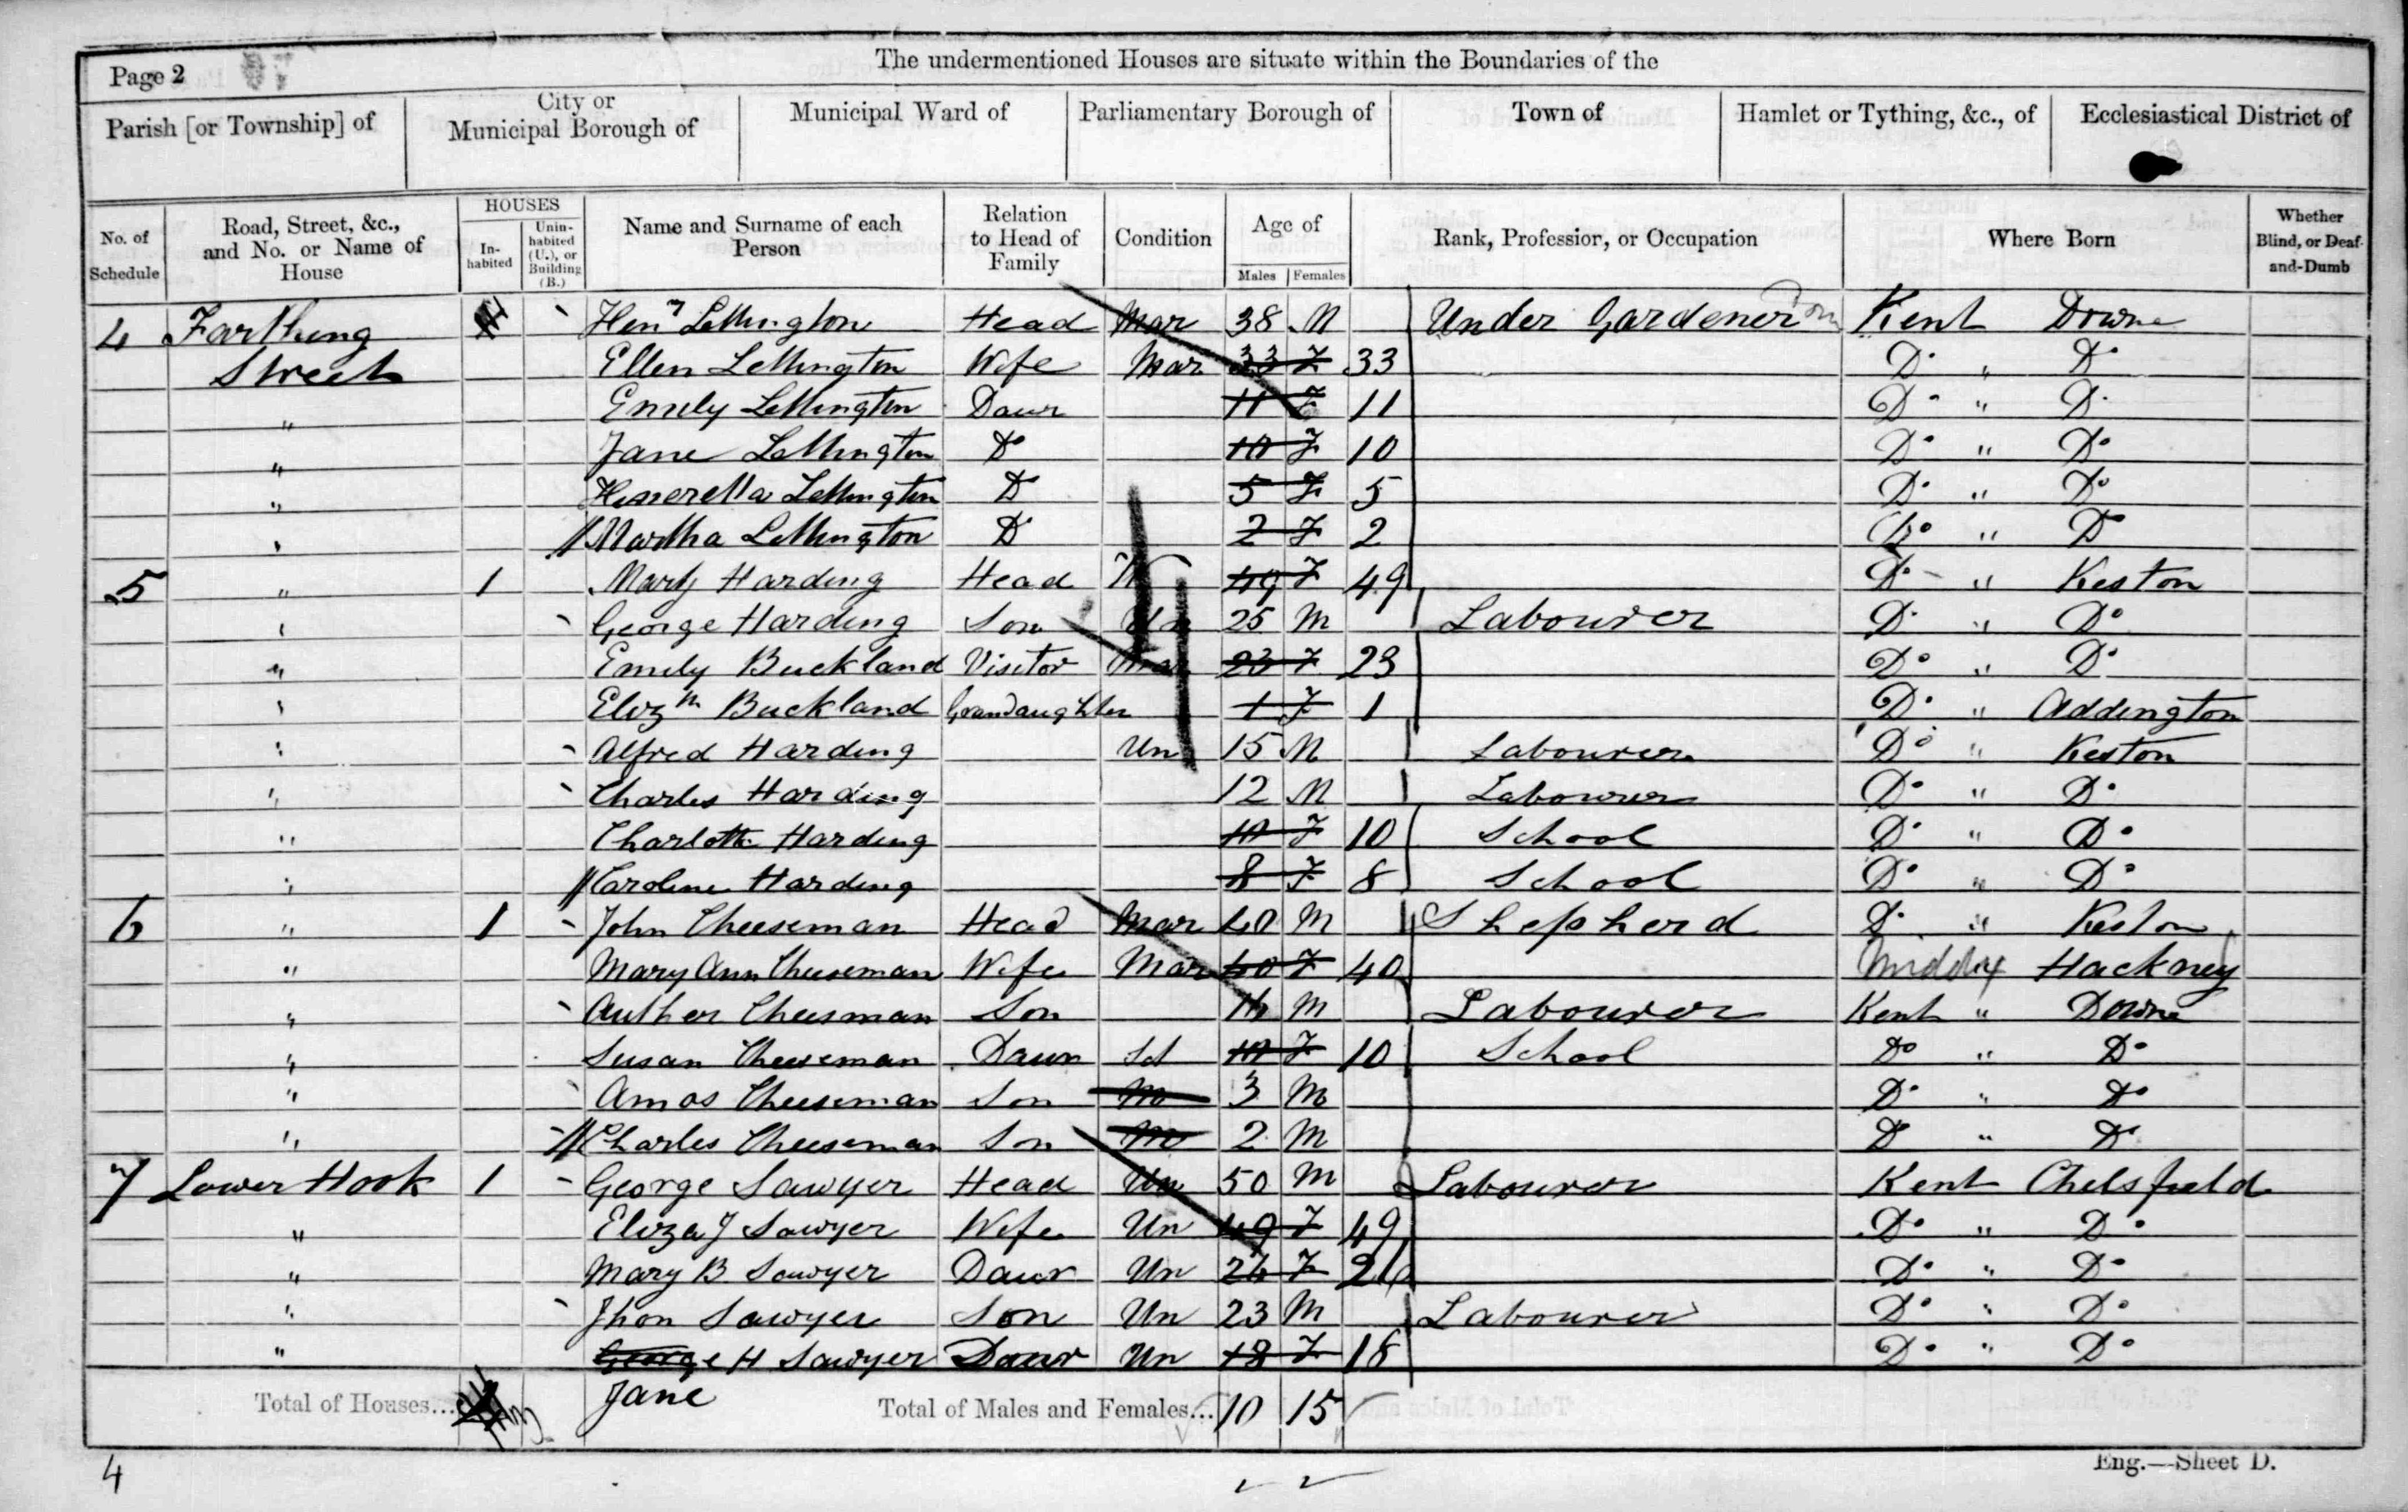 Page 2
The undermentioned Houses are situate within the Boundaries of the
Parish [or Township] of
City or Municipal Borough of
Municipal Ward of
Parliamentary Borough of
Town of
Hamlet or Tything, &c., of
Ecclesiastical District of
No. of Schedule
Road, Street, &c., and No. or Name of House
HOUSES
In-habited
Unin-habited (U.), or Building (B.)
Name and Surname of each Person
Relation to Head of Family
Condition
Age of
Males Females
Rank, Profession, or Occupation
Where Born
Whether Blind, or Deaf-and-Dumb
4 Farthing Heny Lettington Head Mar 38 M Under Gardener Kent Downe
Street Ellen Lettington Wife Mar 33 F 33 Do " Do
" Emily Lettington Daur 11 F 11 Do " Do
" Jane Lettington Do 10 F 10 Do " Do
" Lettington Do 5 F 5 Do " Do
" Martha Lettington Do 2 F 2 Do " Do
5 " 1 Mary Harding Head W 49 F 49 Do " Keston
" George Harding Son Un 25 M Labourer Do " Do
" Emily Buckland Visitor Mar 23 F 23 Do " Do
" Elizth Buckland Grandaughter 1 F 1 Do " Addington
" Alfred Harding Un 15 M Labourer Do " Keston
" Charles Harding 12 M Labourer Do " Do
" Charlotte Harding 10 F 10 School Do " Do
" Caroline Harding 8 F 8 School Do " Do
6 " 1 John Cheeseman Head Mar 40 M Shepherd Do " Keston
" Mary Ann Cheeseman Wife Mar 40 F 40 Middx Hackney
" Auther Cheesman Son M Labourer Kent " Downe
" Susan Cheeseman Daur 10 F 10 School Do " Do
" Amos Cheeseman Son 3 M Do " Do
" Charles Cheeseman Son 2 M Do " Do
7 Lower Hook 1 George Sawyer Head Un 50 M Labourer Kent Chelsfield
" Eliza J Sawyer Wife Un 49 F 49 Do " Do
" Mary B Sawyer Daur Un F Do " Do
" Jhon Sawyer Son Un 23 M Labourer Do " Do
" George H Sawyer Daur Un 18 F 18 Do " Do
Jane
Total of Houses...
Total of Males and Females... 10 15
4
Eng.—Sheet D.